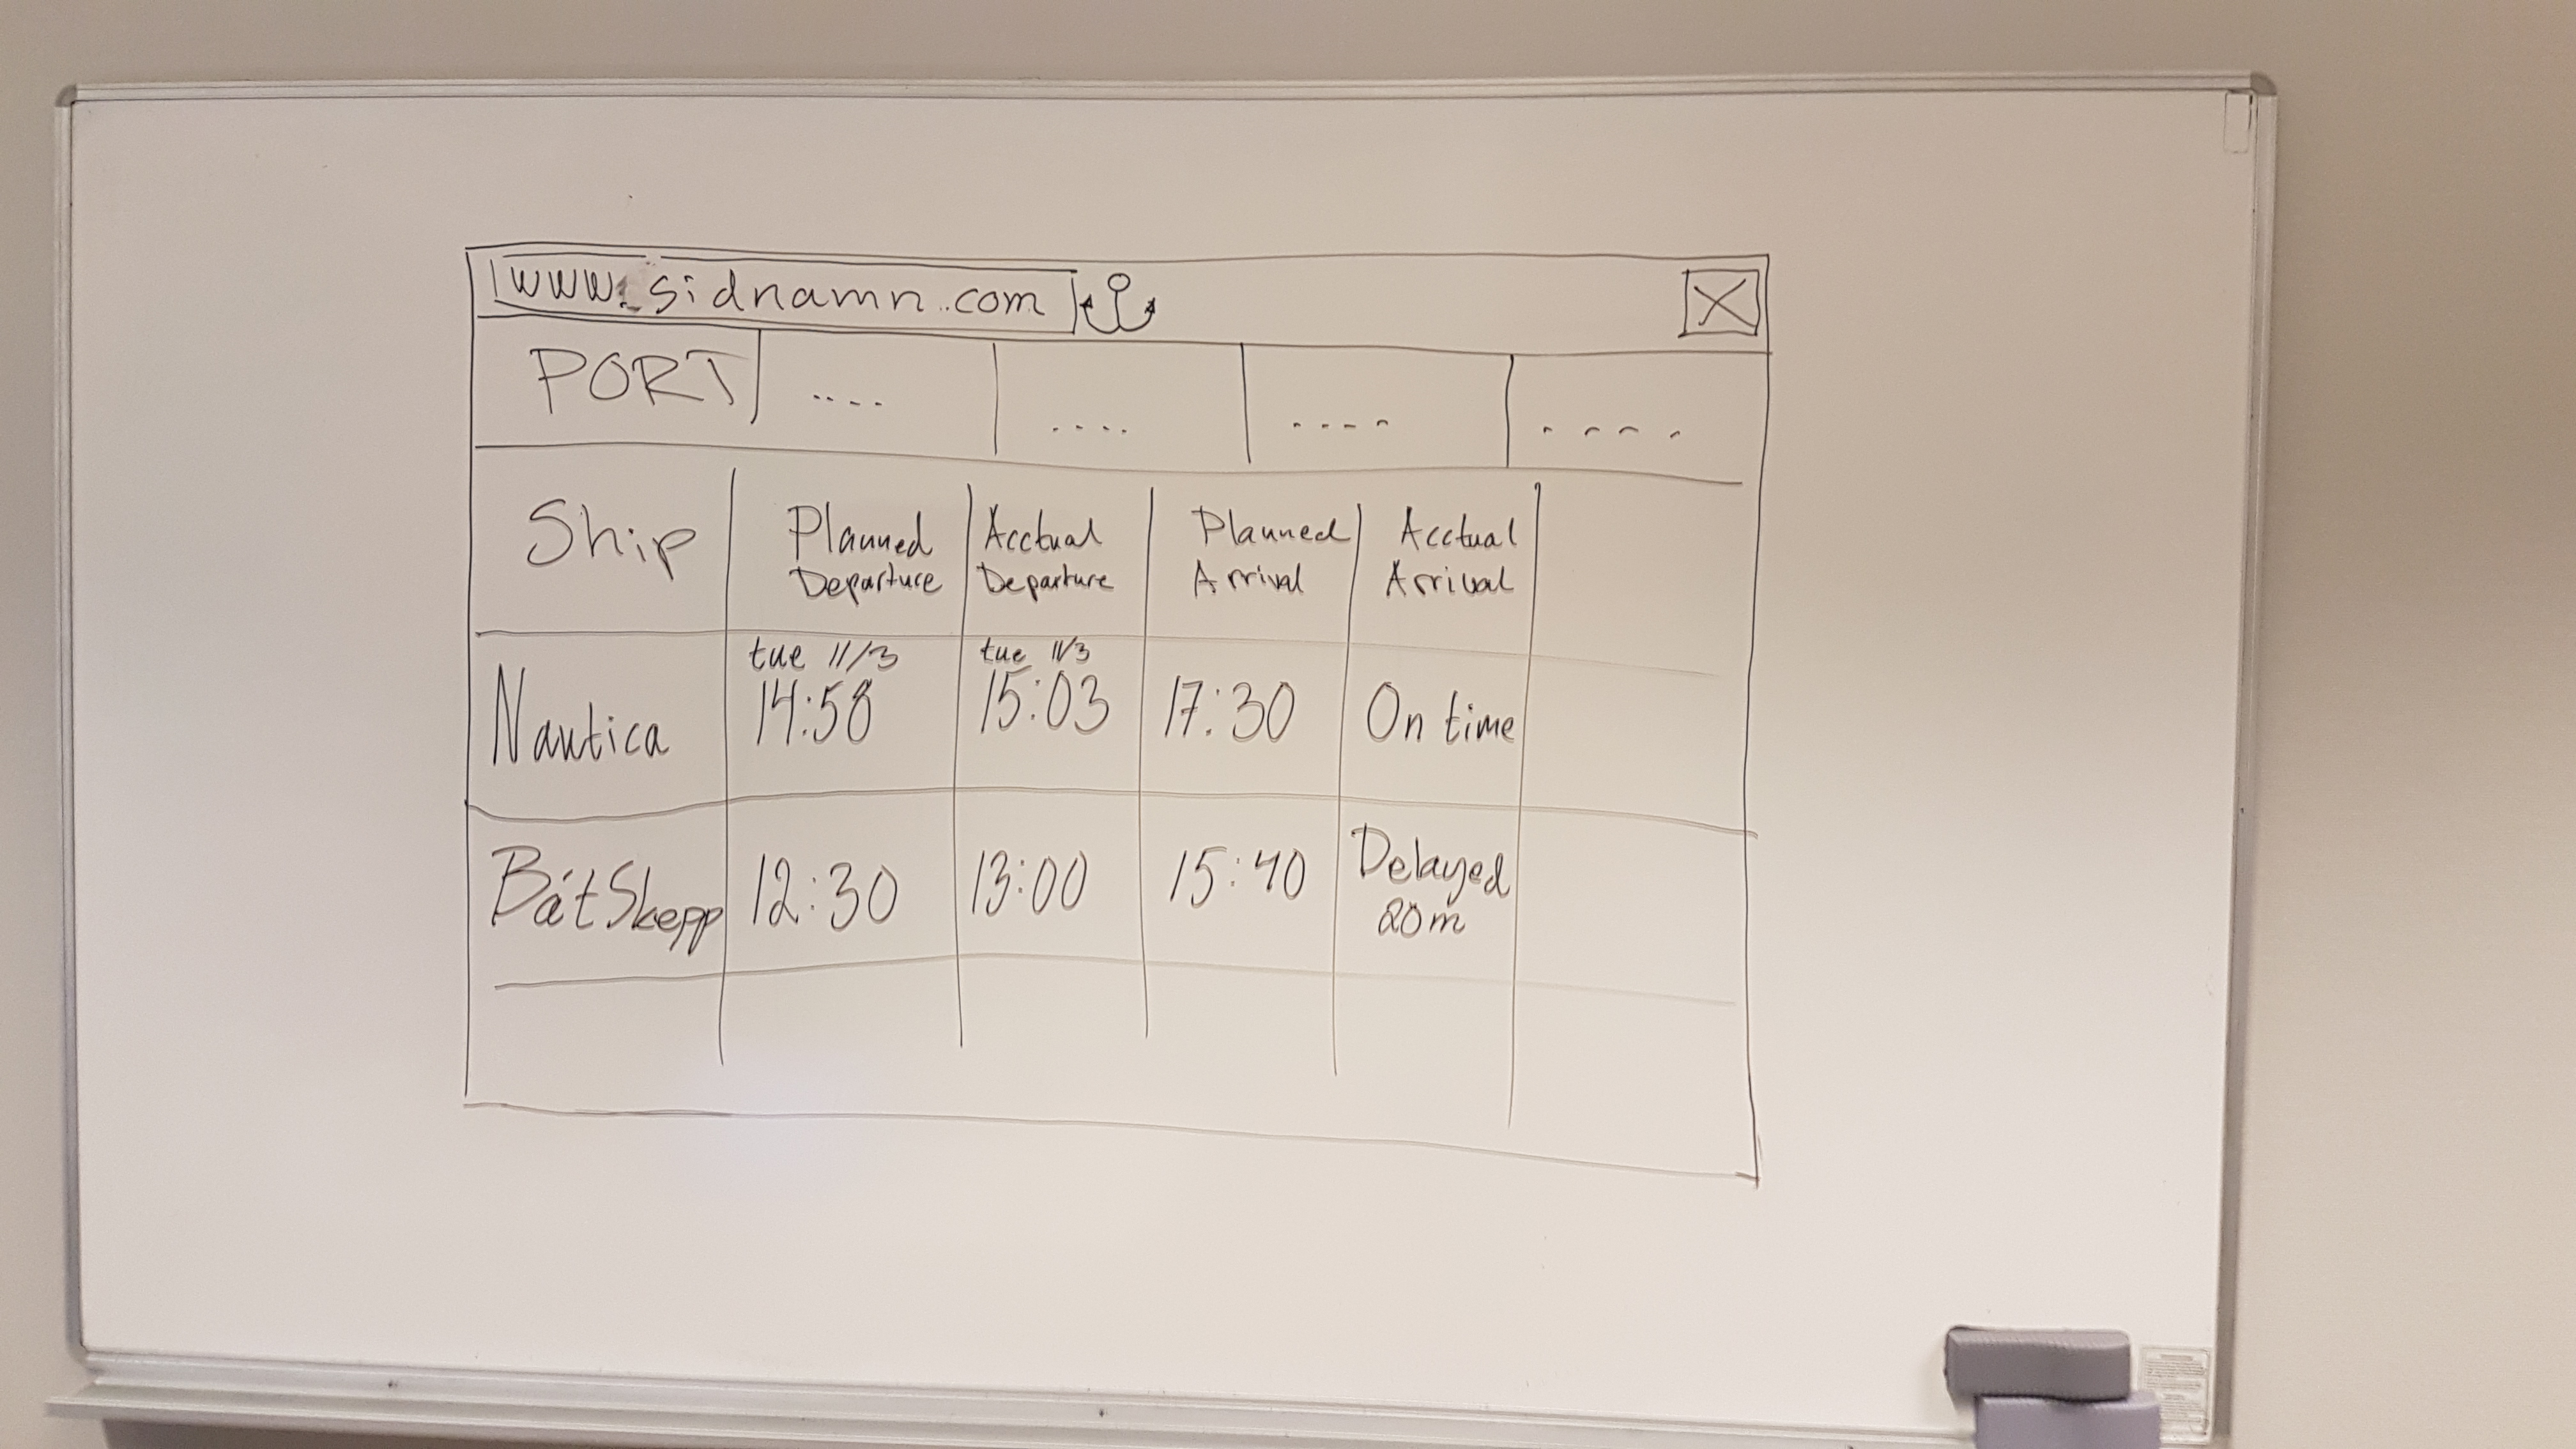 www.sidnamn.com
PORT .... .... .... ....
Ship
Planned Departure
Acctual Departure
Planned Arrival
Acctual Arrival
Nautica
tue 11/3
14:58
tue 11/3
15:03
17:30
On time
BåtSkepp
12:30
13:00
15:40
Delayed
20m